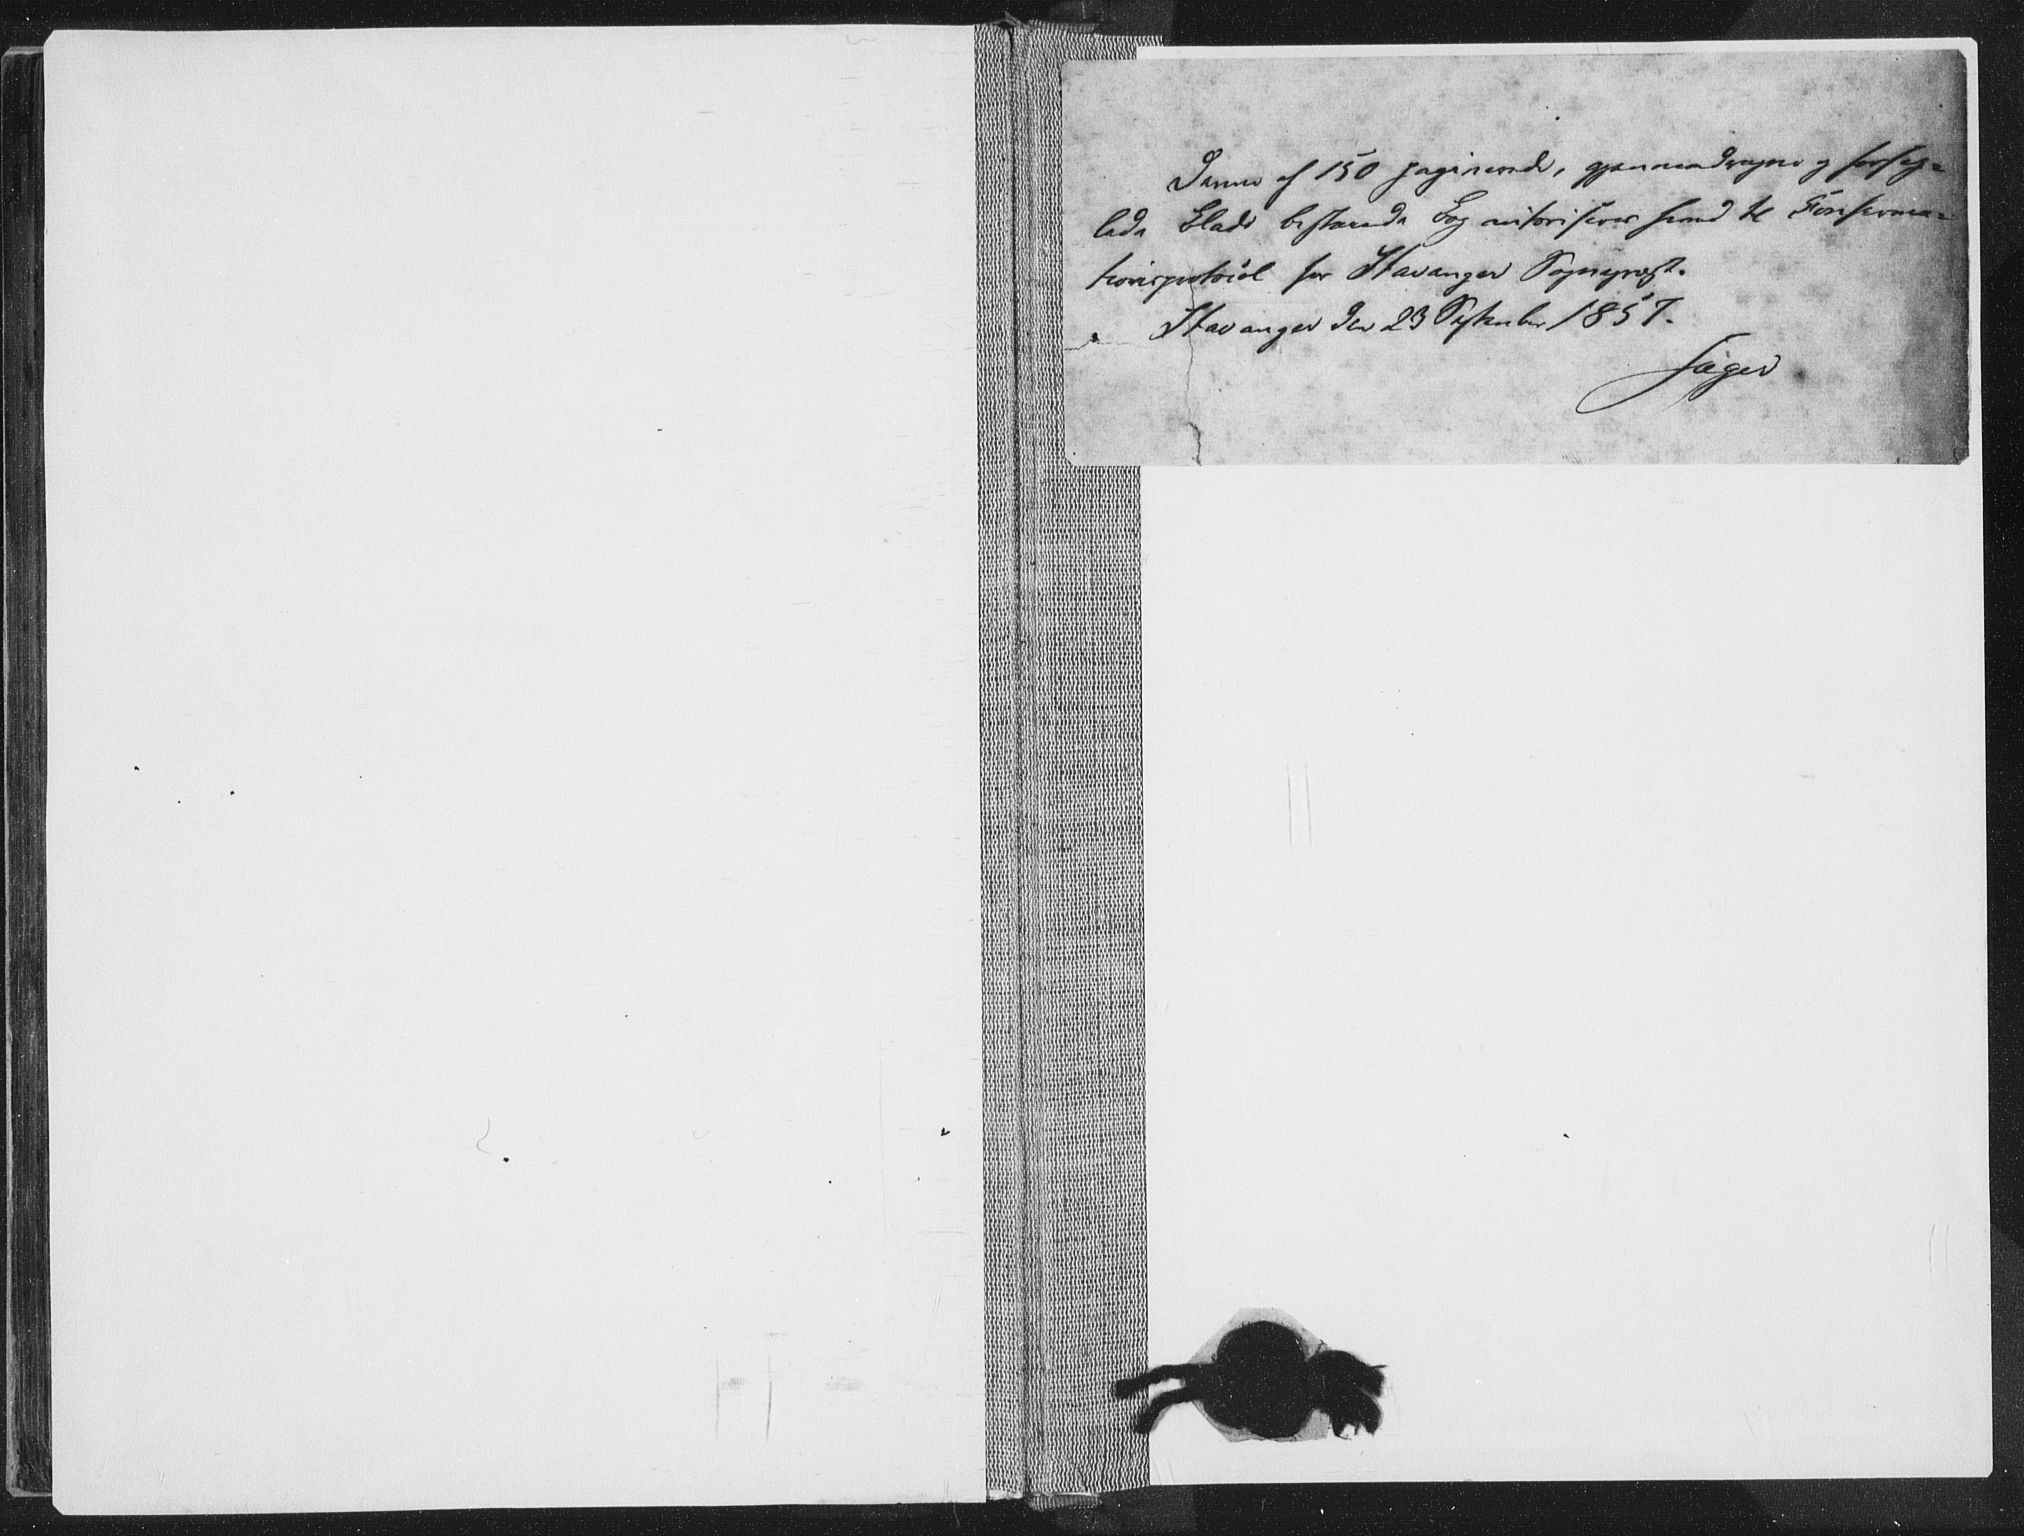 Denne af 150 paginerede, gjennemdragne og forseg=
lede Blade bestaaende Bog autoriseres herved til Konfirma=
tionsprotocol for Stavanger Sognepræst.
Stavanger den 23 September 1857.
Jæger